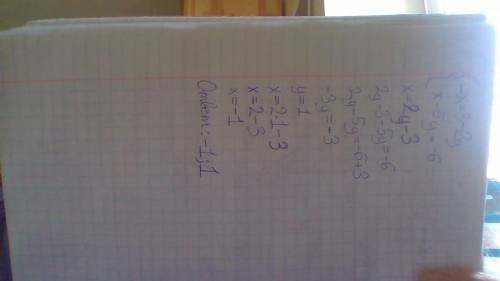 {-x=3-2y
{x-5y=-6
x=2y-3
2y-3-5y=-6
2y-5y=-6+3
-3y=-3
y=1
x=2·1-3
x=2-3
x=-1
Ответ: -1;1